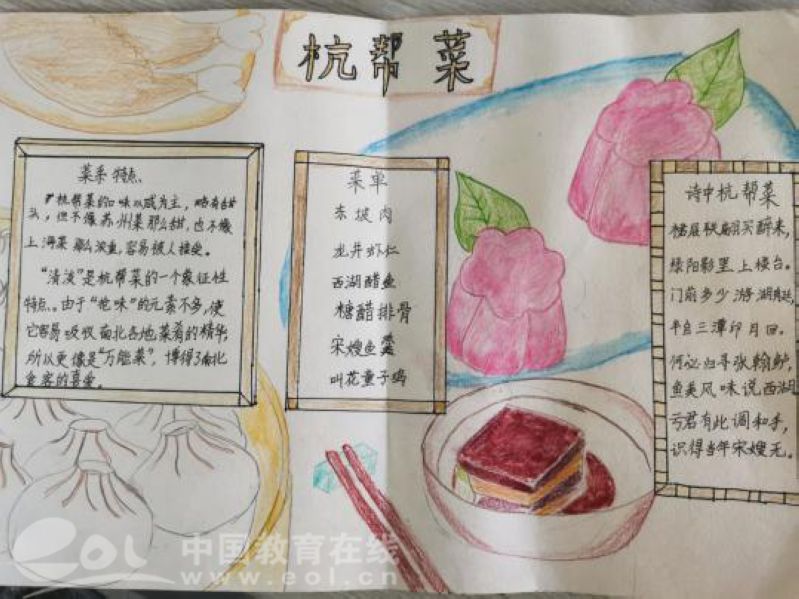 杭帮菜
菜系特点
杭帮菜的口味以咸为主,略有甜
头,但不像苏州菜那么甜,也不像
上海菜那么浓重,容易被人接受。
"清淡"是杭帮菜的一个象征性
特点。由于"抢味"的元素不多,使
它容易吸收南北各地菜肴的精华,
所以更像是"万能菜",博得了南北
食客的喜爱。
菜单
东坡肉
龙井虾仁
西湖醋鱼
糖醋排骨
宋嫂鱼羹
叫花童子鸡
诗中杭帮菜
裙屐联翩买醉来,
绿阳影里上楼台。
门前多少游湖艇,
半自三潭印月回。
何必归寻张翰鲈,
鱼美风味说西湖
亏君有此调和手,
识得当年宋嫂无。
eol 中国教育在线
www.eol.cn